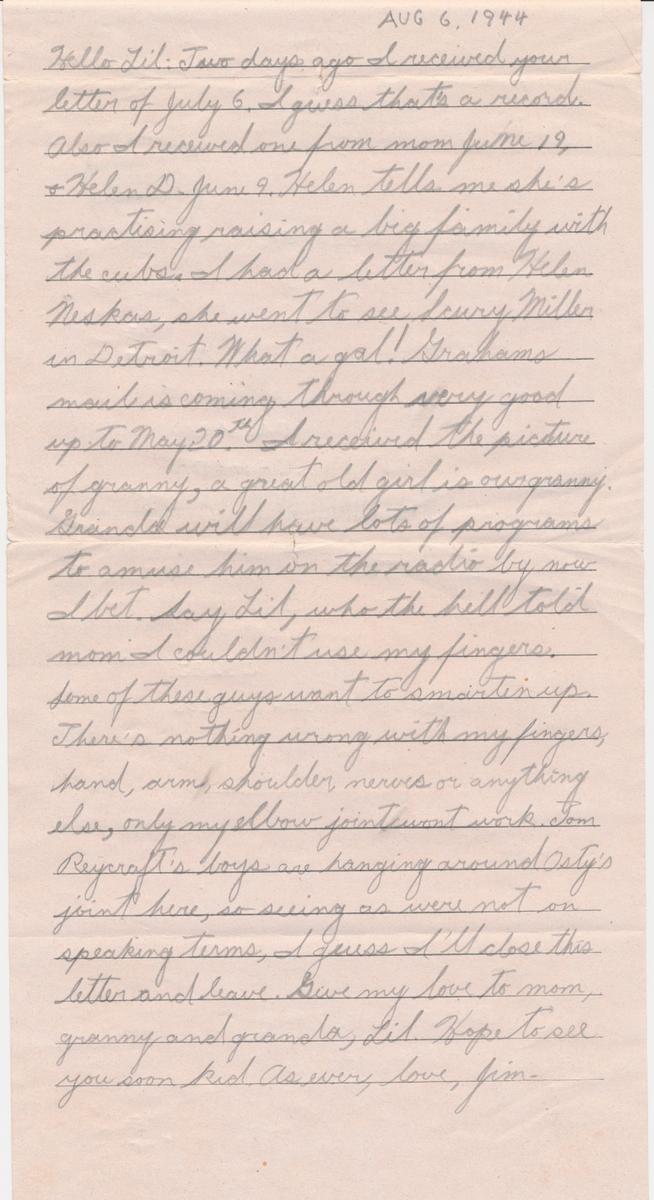 AUG 6, 1944
Hello Lil: Two days ago I received your
letter of July 6. I guess that's a record.
Also I received one from mom June 19,
& Helen D. June 9. Helen tells me she's
practising raising a big family with
the cubs. I had a letter from Helen
Neskas, she went to see Lcury Miller
in Detroit. What a gal! Grahams
mail is coming through very good
up to May 20th. I received the picture
of granny, a great old girl is our granny.
Granda will have lots of programs
to amuse him on the radio by now
I bet. Say Lil, who the hell told
mom I couldn't use my fingers.
Some of these guys want to smarten up.
There's nothing wrong with my fingers,
hand, arm, shoulder, nerves or anything
else, only my elbow joint wont work. Tom
Reycraft's boys are hanging around Osty's
joint here, so seeing as were not on
speaking terms, I guess I'll close this
letter and leave. Give my love to mom,
granny and granda, Lil. Hope to see
you soon kid. As ever, love, Jim-